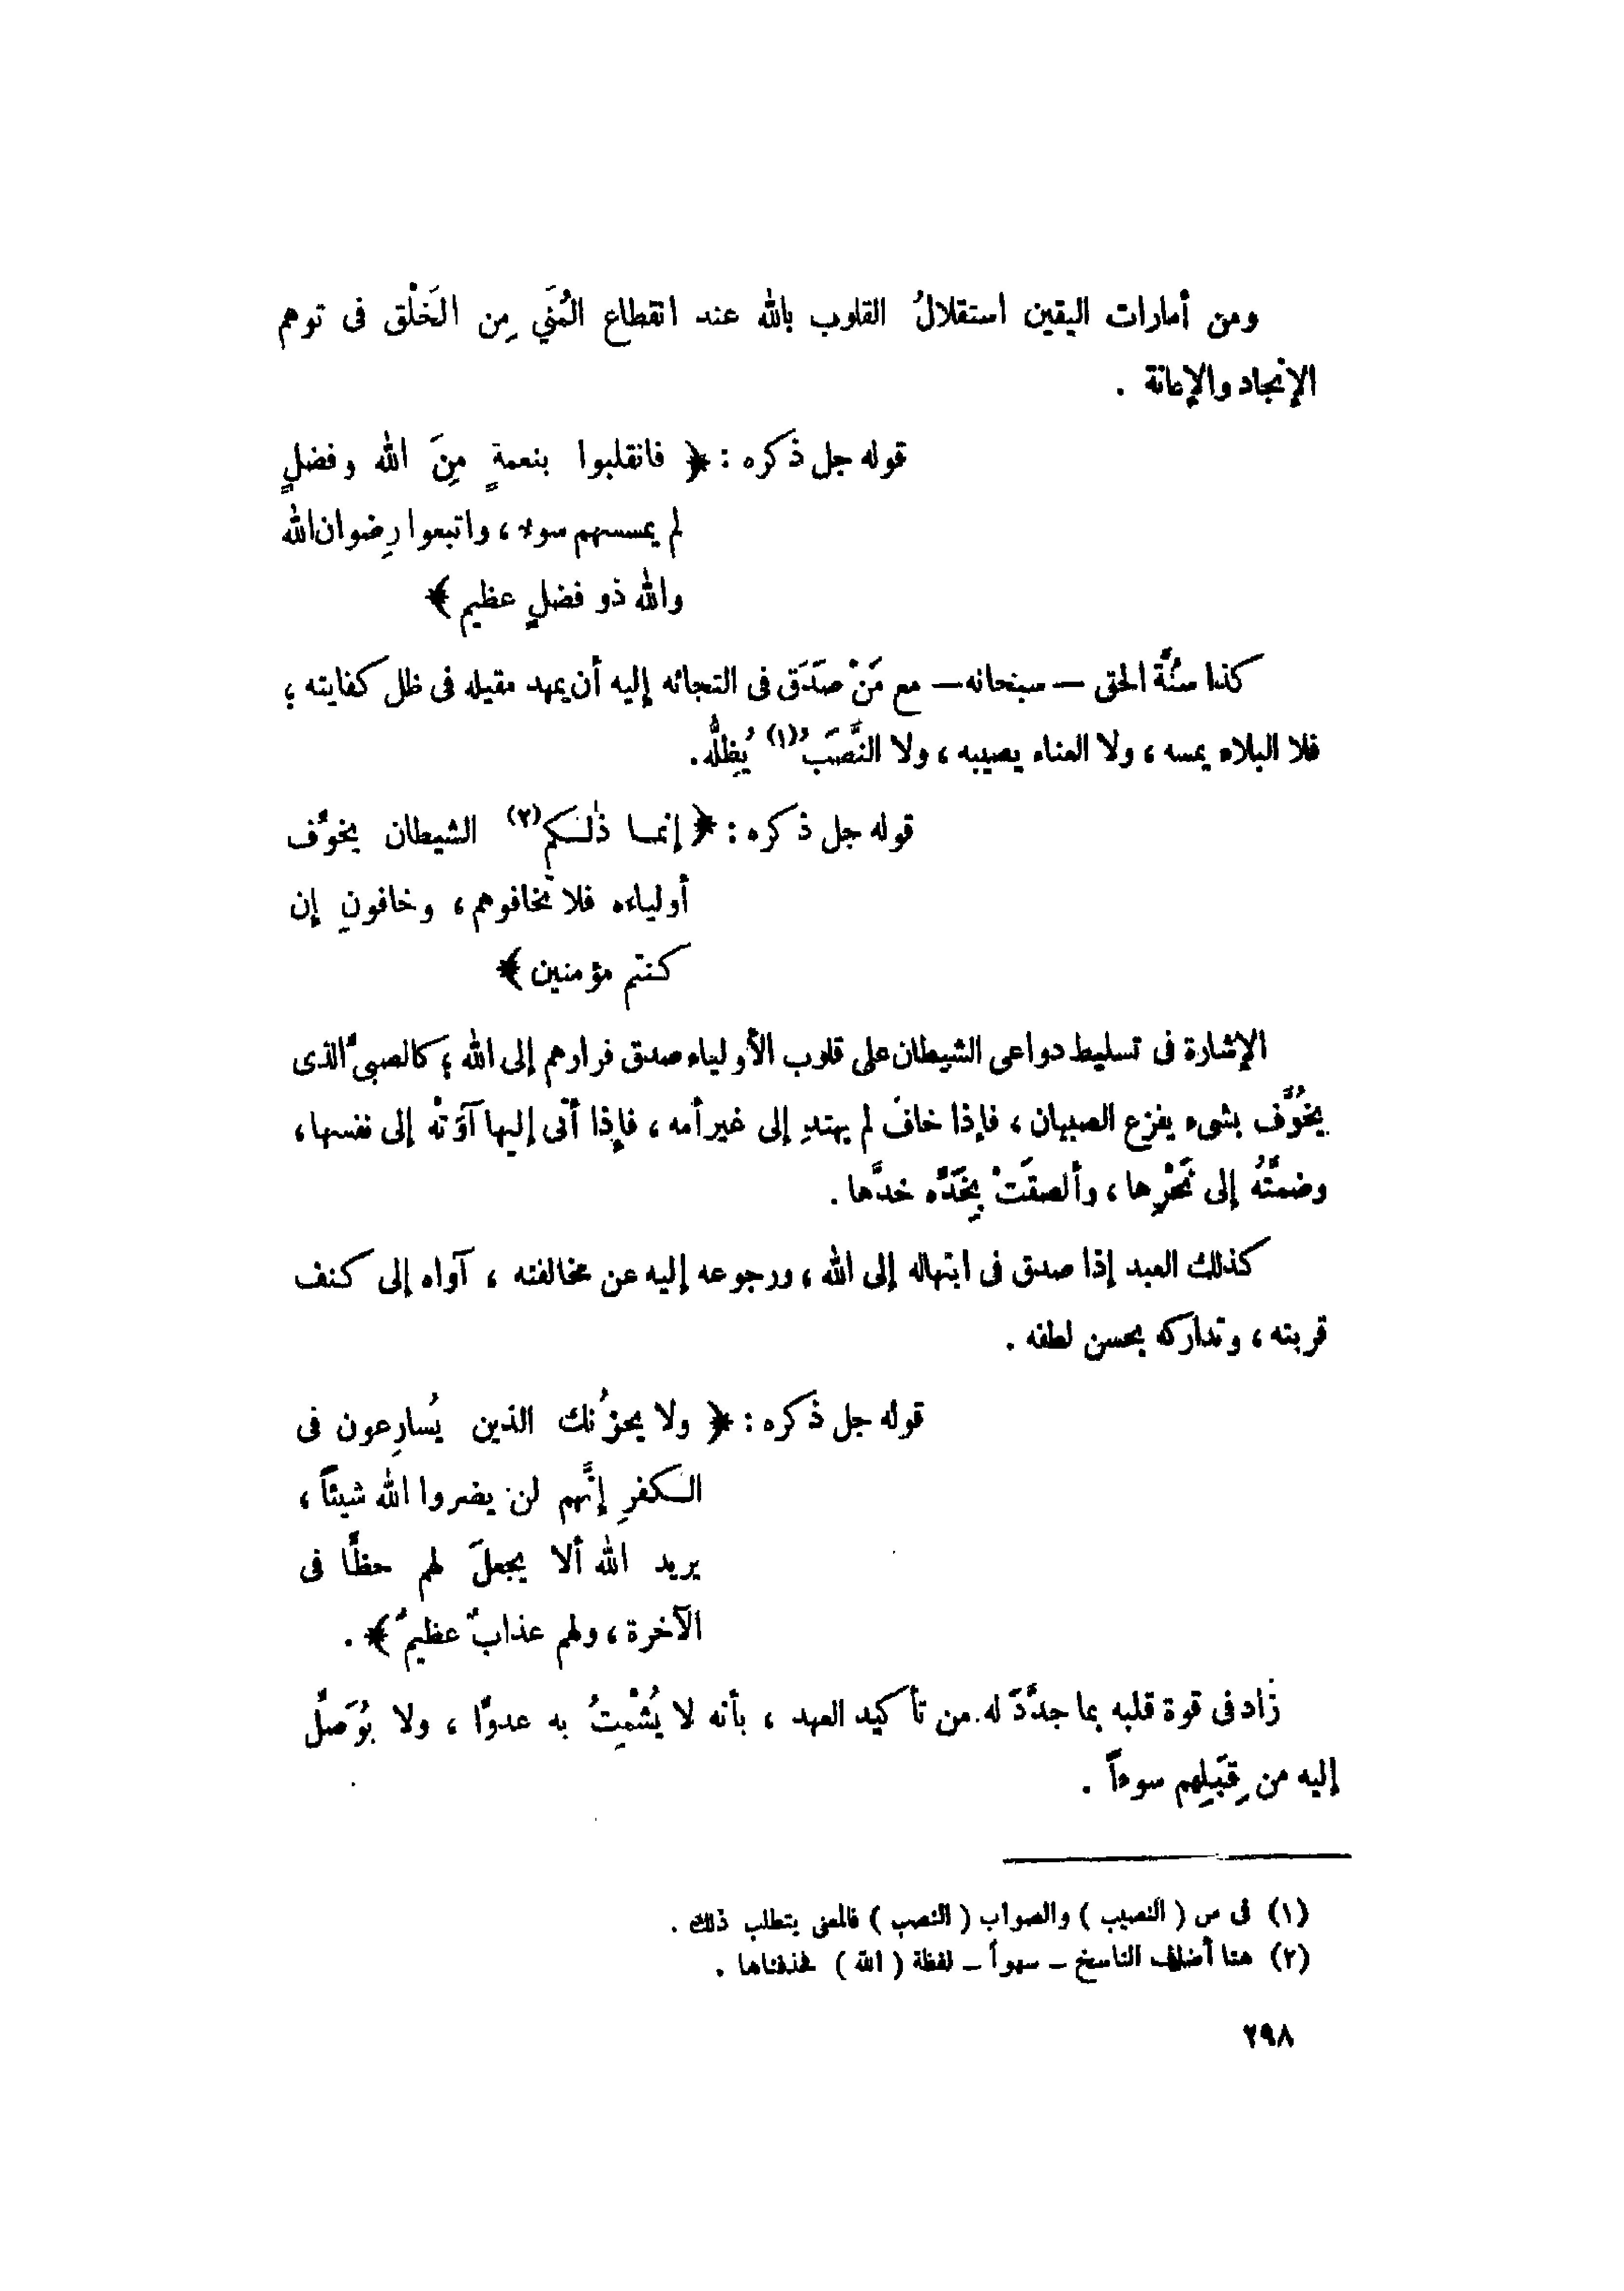 ومن أمارات اليقين استقلالُ القلوب بالله عند انقطاع المُنَى مِن الخَلْق فى توهم
الإنجاد والإعانة .
قوله جل ذكره : ﴿ فانقلبوا بنعمةٍ مِنَ الله وفضلٍ
لم يمسسهم سوء ، واتبعوا رِضوان الله
والله ذو فضلٍ عظيم ﴾
كذا سُنَّة الحق — سبحانه — مع مَنْ صَدَق فى التجائه إليه أن يمهد مقيله فى ظل كفايته ؛
فلا البلاء يمسه ، ولا العناء يصيبه ، ولا النَّصَبُ (١) يُظِلُّه.
قوله جل ذكره : ﴿ إنما ذٰلكم (٢) الشيطان يخوِّف
أولياءه فلا تخافوهم ، وخافونِ إن
كنتم مؤمنين ﴾
الإشارة فى تسليط دواعى الشيطان على قلوب الأولياء صدق فرارهم إلى الله ؛ كالصبىِّ الذى
يُخَوَّف بشىء يفزع الصبيان ، فإذا خاف لم يهتدِ إلى غير أمه ، فإذا أتى إليها آوَتْه إلى نفسها ،
وضمَّتْهُ إلى نَحْرِها ، وألصقَتْ بِخَدِّه خدَّها .
كذلك العبد إذا صدق فى ابتهاله إلى الله ، ورجوعه إليه عن مخالفته ، آواه إلى كنف
قربته ، وتداركه بحسن لطفه .
قوله جل ذكره : ﴿ ولا يحزُنك الذين يُسارِعون فى
الكفرِ إنَّهم لن يضروا الله شيئاً ،
يريد الله ألا يجعلَ لهم حظًّا فى
الآخرة ، ولهم عذابٌ عظيمٌ ﴾ .
زاد فى قوة قلبه بما جدَّدَ له من تأكيد العهد ، بأنه لا يُشْمِتُ به عدوًّا ، ولا يُوَصِّلُ
إليه من قِبَلِهم سوءاً .
(١) فى س ( النصيب ) والصواب ( النصب ) فالمعنى يتطلب ذلك .
(٢) هنا أضاف الناسخ – سهواً – لفظة ( الله ) فحذفناها .
٢٩٨